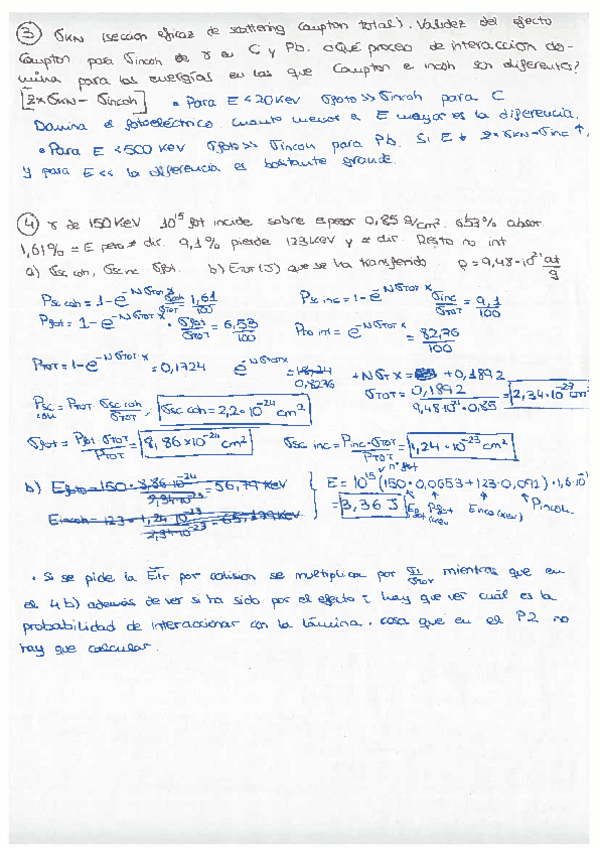 ③ σKN (sección eficaz de scattering Compton total). Validez del efecto
Compton para σincoh de γ en C y Pb. ¿Qué proceso de interacción do-
mina para las energías en las que Compton e incoh son diferentes?
[Z*σKN - σincoh] • Para E < 20 KeV σfoto >> σincoh para C
Domina el fotoeléctrico cuanto menor a E mayor es la diferencia.
• Para E < 500 KeV σfoto >> σincoh para Pb. Si E ↓ Z*σKN - σinc ↑,
y para E << la diferencia es bastante grande.
④ γ de 150 KeV 10^15 fot incide sobre espesor 0,85 g/cm². 6,53% absor.
1,61% = E pero ≠ dir. 9,1% pierde 123 KeV y ≠ dir. Resto no int
a) σsc coh, σsc inc σfot. b) (J) que se ha transferido. ρ = 9,48·10^21 at/g
Psc coh = 1 - e^-NσTOT x σcoh/σTOT = 1,61/100 Psc inc = 1 - e^-NσTOT x σinc/σTOT = 9,1/100
Pfot = 1 - e^-NσTOT x · σfot/σTOT = 6,53/100 Pno int = e^-NσTOT x = 82,76/100
PTOT = 1 - e^-NσTOT x = 0,1724 e^NσTOT x = 0,8276 + NσT x = + 0,1892
σTOT = 0,1892/9,48·10^21·0,85 = 2,34·10^-23 cm²
Psc coh = PTOT · σsc coh/σTOT, σsc coh = 2,2·10^-24 cm²
σfot = Pfot · σTOT/PTOT = 8,86×10^-24 cm² σsc inc = Pinc·σTOT/PTOT = 1,24·10^-23 cm²
b) Efoto = 150 · 8,86·10^-24/2,34·10^-23 = 56,79 KeV E = 10^15 (150·0,0653 + 123·0,091)·1,6·10
Eincoh = 123 · 1,24·10^-23/2,34·10^-23 = KeV = 3,36 J
nº fot Efot (KeV) Pfot Einco (KeV) Pincoh
• Si se pide la Etr por colision se multiplica por σi/σTOT mientras que en
el 4b) además de ver si ha sido por el efecto i hay que ver cuál es la
probabilidad de interaccionar con la lámina, cosa que en el P2 no
hay que calcular.